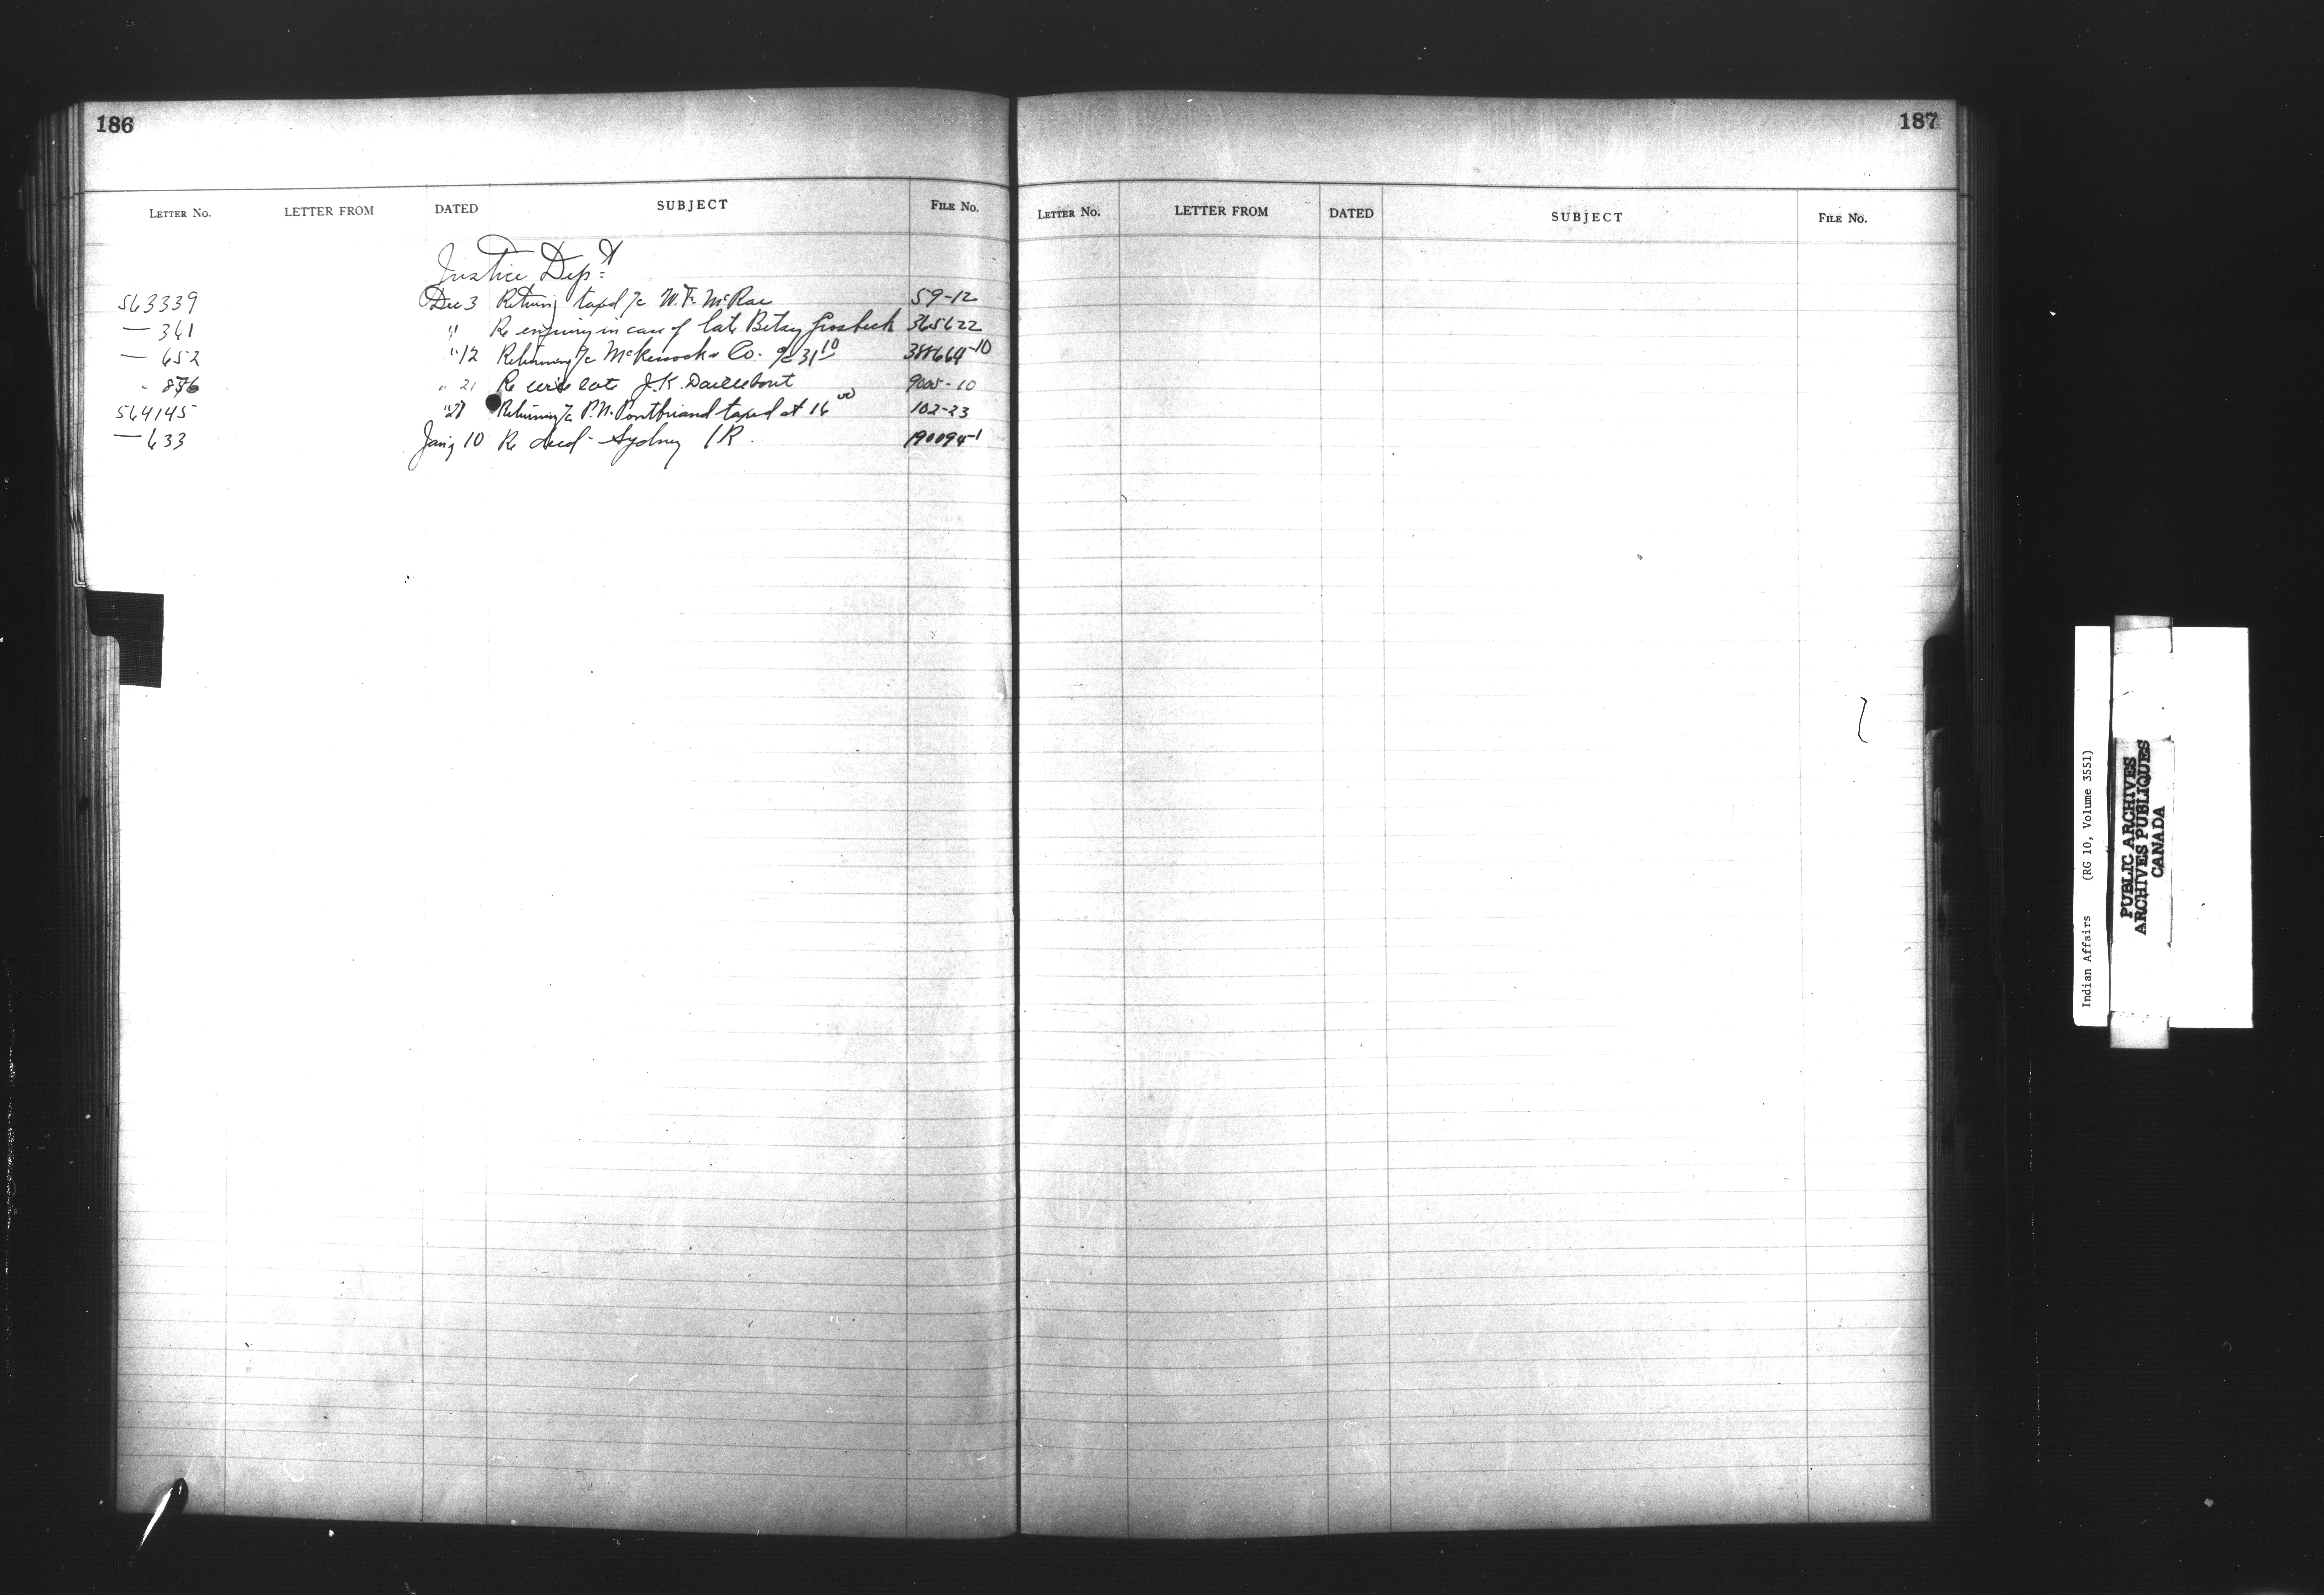 186
LETTER No. LETTER FROM DATED SUBJECT FILE No.
Justice Dept
563339 Dec 3 Returning taxed a/c W. F. McRae 59-12
— 361 " Re enquiry in case of late Betsy 365622
— 652 " 12 Returning a/c & Co. a/c 31 10 388664-10
" 21 Re late J. K. 10
564145 " 27 Returning a/c P. N. Pontbriand taxed at 16 00 102-23
— 633 Jany 10 Re deed - Sydney I R. 190094-1
187
LETTER No. LETTER FROM DATED SUBJECT FILE No.
Indian Affairs (RG 10, Volume 3551)
PUBLIC ARCHIVES
ARCHIVES PUBLIQUES
CANADA